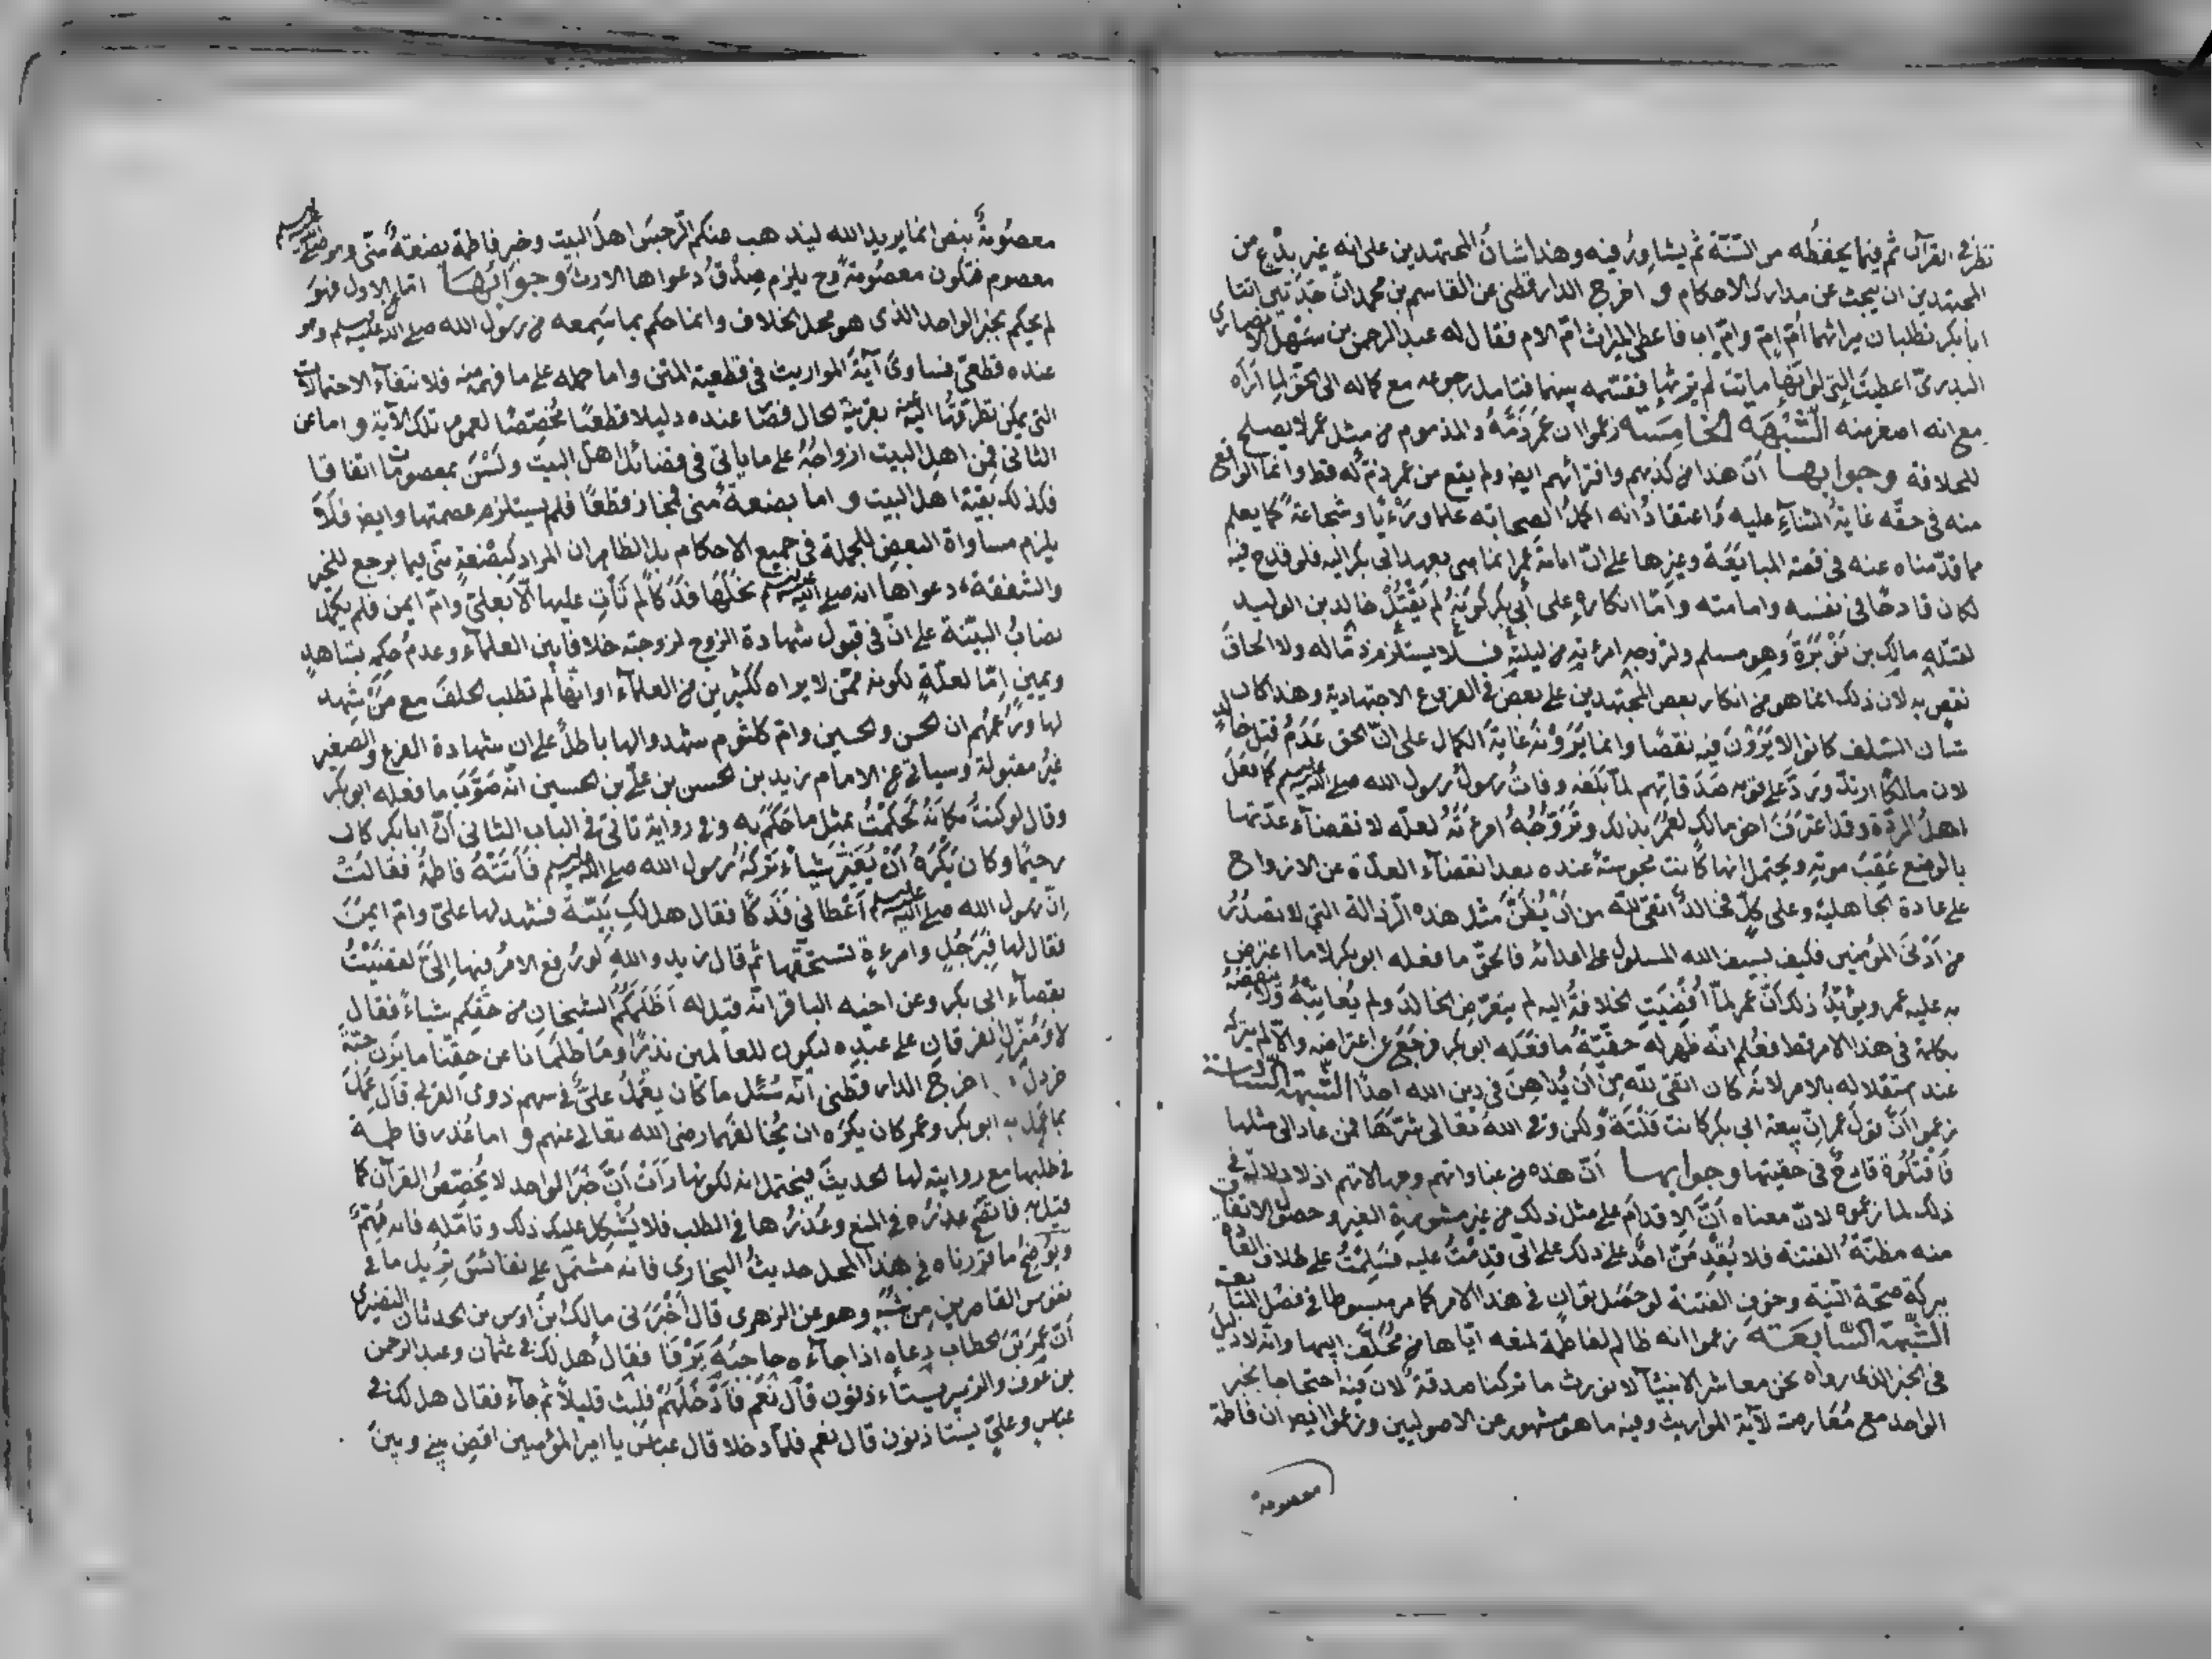 نظر في القرآن ثم فيما يحفظه من السنة ثم يشاور فيه وهذا شان المجتهدين على انه غير بدع من
المجتهدين ان يبحث عن مدارك الاحكام و اخرج الدارقطني عن القاسم بن محمد ان جدتين اتتا
ابا بكر تطلبان ميراثهما ام ام وام اب فاعطى الميراث ام الام فقال له عبد الرحمن بن سهل الانصاري
البدري اعطيت التي لو انها ماتت لم يرثها فقسمه بينهما فتامل رجوعه مع كماله الى الحق لما رآه
مع انه اصغر منه الشبهة الخامسة زعموا ان عمر ذمه والمذموم من مثل عمر لا يصلح
للخلافة وجوابها ان هذا من كذبهم وافترائهم ايض ولم يقع من عمر ذم له قط وانما الواقع
منه في حقه غاية الثناء عليه واعتقاد انه اكمل الصحابة علما ورءيا وشجاعة كما يعلم
مما قدمناه عنه في قصة المبايعة وغيرها على ان امامة عمر انما هي بعهد ابي بكر اليه فلو قدح فيه
لكان قادحا في نفسه وامامته واما انكاره على ابي بكر كونه لم يقتل خالد بن الوليد
لقتله مالك بن نويرة وهو مسلم ولتزوجه امرءته من ليلته فلا يستلزم ذما له ولا الحاق
نقص به لان ذلك انما هو من انكار بعض المجتهدين على بعض في الفروع الاجتهادية وهذا كان
شان السلف كانوا لا يرون فيه نقصا وانما يرونه غاية الكمال على ان الحق عدم قتل خالد
لان مالكا ارتد ورد على قومه صدقاتهم لما بلغه وفات رسول رسول الله صلى الله عليه وسلم كما فعل
اهل الردة وقد اعترف اخو مالك لعمر بذلك وتزوجه امرءته لعله لانقضآء عدتها
بالوضع عقب موته ويحتمل انها كانت محبوسة عنده بعد انقضآء العدة عن الازواج
على عادة الجاهلية وعلى كل فخالد اتقى لله من ان يظن مثل هذه الرذالة التي لا تصدر
من ادنى المؤمنين فكيف بسيف الله المسلول على اعدائه فالحق ما فعله ابو بكر لا ما اعترض
به عليه عمر ويؤيد ذلك ان عمر لما افضيت الخلافة اليه لم يتعرض لخالد ولم يعاتبه ولا ينقصه
بكلمة في هذا الامر قط فعلم انه ظهر له حقية ما فعله ابو بكر فرجع عن اعتراضه والا لم يتركه
عند استقلاله بالامر لانه كان اتقى لله من ان يداهن في دين الله احدا الشبهة السادسة
زعموا ان قول عمر ان بيعة ابي بكر كانت فلتة ولكن وقى الله تعالى شرها فمن عاد الى مثلها
فاقتلوه قادح في حقيتها وجوابها ان هذه من غباواتهم وجهالاتهم اذ لا دلالة في
ذلك لما زعموه لان معناه ان الاقدام على مثل ذلك من غير مشورة الغير وحصول الاتفاق
منه مظنة الفتنة فلا يقدمن احد على ذلك على اني قدمت عليه فسلمت على خلاف العادة
ببركة صحة النية وخوف الفتنة لو حصل توان في هذا الامر كما مر مبسوطا في فصل المبايعة
الشبهة السابعة زعموا انه ظالم لفاطمة لمنعه اياها من مخلف ابيها وانه لا دليل
في الخبر الذي رواه نحن معاشر الانبيآء لا نورث ما تركناه صدقة لان فيه احتجاجا بخبر
الواحد مع معارضته لآية المواريث وفيه ما هو مشهور عن الاصوليين وزعموا ايض ان فاطمة
معصومة
معصومة بنص انما يريد الله ليذهب عنكم الرجس اهل البيت وخبر فاطمة بضعة مني وهو صلى الله عليه وسلم
معصوم فتكون معصومة وح يلزم صدق دعواها الارث وجوابها اما عن الاول فهو
لم يحكم بخبر الواحد الذي هو محل الخلاف وانما حكم بما سمعه من رسول الله صلى الله عليه وسلم وهو
عنده قطعي فساوى آية المواريث في قطعية المتن واما حمله على ما فهمه منه فلانتفآء الاحتمالات
التي يمكن تطرقها اليه عنه بقرينة الحال فصار عنده دليلا قطعيا مخصصا لعموم تلك الآية واما عن
الثاني فمن اهل البيت ازواجه على ما ياتي في فضائل اهل البيت ولسن بمعصومات اتفاقا
فكذلك بقية اهل البيت واما بضعة مني فمجاز قطعا فلم يستلزم عصمتها وايض فلا
يلزم مساواة البعض للجملة في جميع الاحكام بل الظاهر ان المراد كبضعة مني فيما يرجع للخير
والشفقة ودعواها انه صلى الله عليه وسلم نحلها فدكا لم تات عليها الا بعلي وام ايمن فلم يكمل
نصاب البينة على ان في قبول شهادة الزوج لزوجته خلافا بين العلمآء وعدم حكمه بشاهد
ويمين اما لعلة لكونه ممن لا يراه ككثيرين من العلمآء او انها لم تطلب الحلف مع من شهد
لها وزعمهم ان الحسن والحسين وام كلثوم شهدوا لها باطل على ان شهادة الفرع والصغير
غير مقبولة وسياتي عن الامام زيد بن الحسن بن علي بن الحسين انه صوب ما فعله ابو بكر
وقال لو كنت مكانه لحكمت بمثل ما حكم به وفي رواية تاتي في الباب الثاني ان ابا بكر كان
رحيما وكان يكره ان يغير شياء تركه رسول الله صلى الله عليه وسلم فاتته فاطمة فقالت
ان رسول الله صلى الله عليه وسلم اعطاني فدكا فقال هل لك بينة فشهد لها علي وام ايمن
فقال لها فبرجل وامرءة تستحقها ثم قال زيد والله لو رفع الامر فيها الي لقضيت
بقضآء ابي بكر وعن اخيه الباقر انه قيل له اظلمكم الشيخان من حقكم شياء فقال
لا ومنزل الفرقان على عبده ليكون للعالمين نذيرا وما ظلمانا عن حقنا ما يزن حبة
خردلة و اخرج الدارقطني انه سئل ما كان يعمل علي في سهم ذوي القربى قال عمل
بما عمل به ابو بكر وعمر كان يكره ان يخالفهما رضي الله تعالى عنهم واما عذر فاطمة
في طلبها مع روايته لها الحديث فيحتمل انه لكونها رات ان خبر الواحد لا يخصص القرآن كما
قيل به فاتضح عذره في المنع وعذرها في الطلب فلا يشكل عليك ذلك وتامله فانه مهم
ويوضح ما قررناه في هذا المحل حديث البخاري فانه مشتمل على نفائس تزيل ما في
نفوس القاصرين من شبه وهو عن الزهري قال اخبرني مالك بن اوس بن الحدثان النضيري
ان عمر بن الخطاب دعاه اذا جآءه حاجبه يرفا فقال هل لك في عثمان وعبد الرحمن
بن عوف والزبير يستاءذنون قال نعم فادخلهم فلبث قليلا ثم جآء فقال هل لك في
عباس وعلي يستاذنون قال نعم فلما دخلا قال عباس يا امير المؤمنين اقض بيني وبين